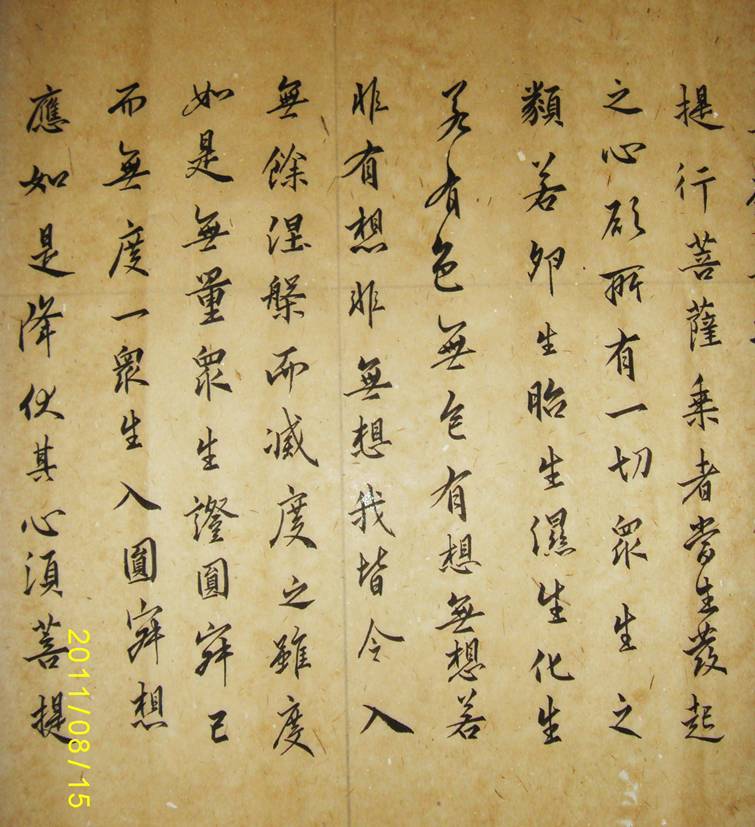 提行菩薩乘者當生發起
之心所有一切眾生之
類若卵生胎生濕生化生
若有色無色有想無想若
非有想非無想我皆令入
無餘涅槃而滅度之雖度
如是無量眾生證圓寂已
而無度一眾生入圓寂想
應如是降伏其心須菩提
2011/08/15